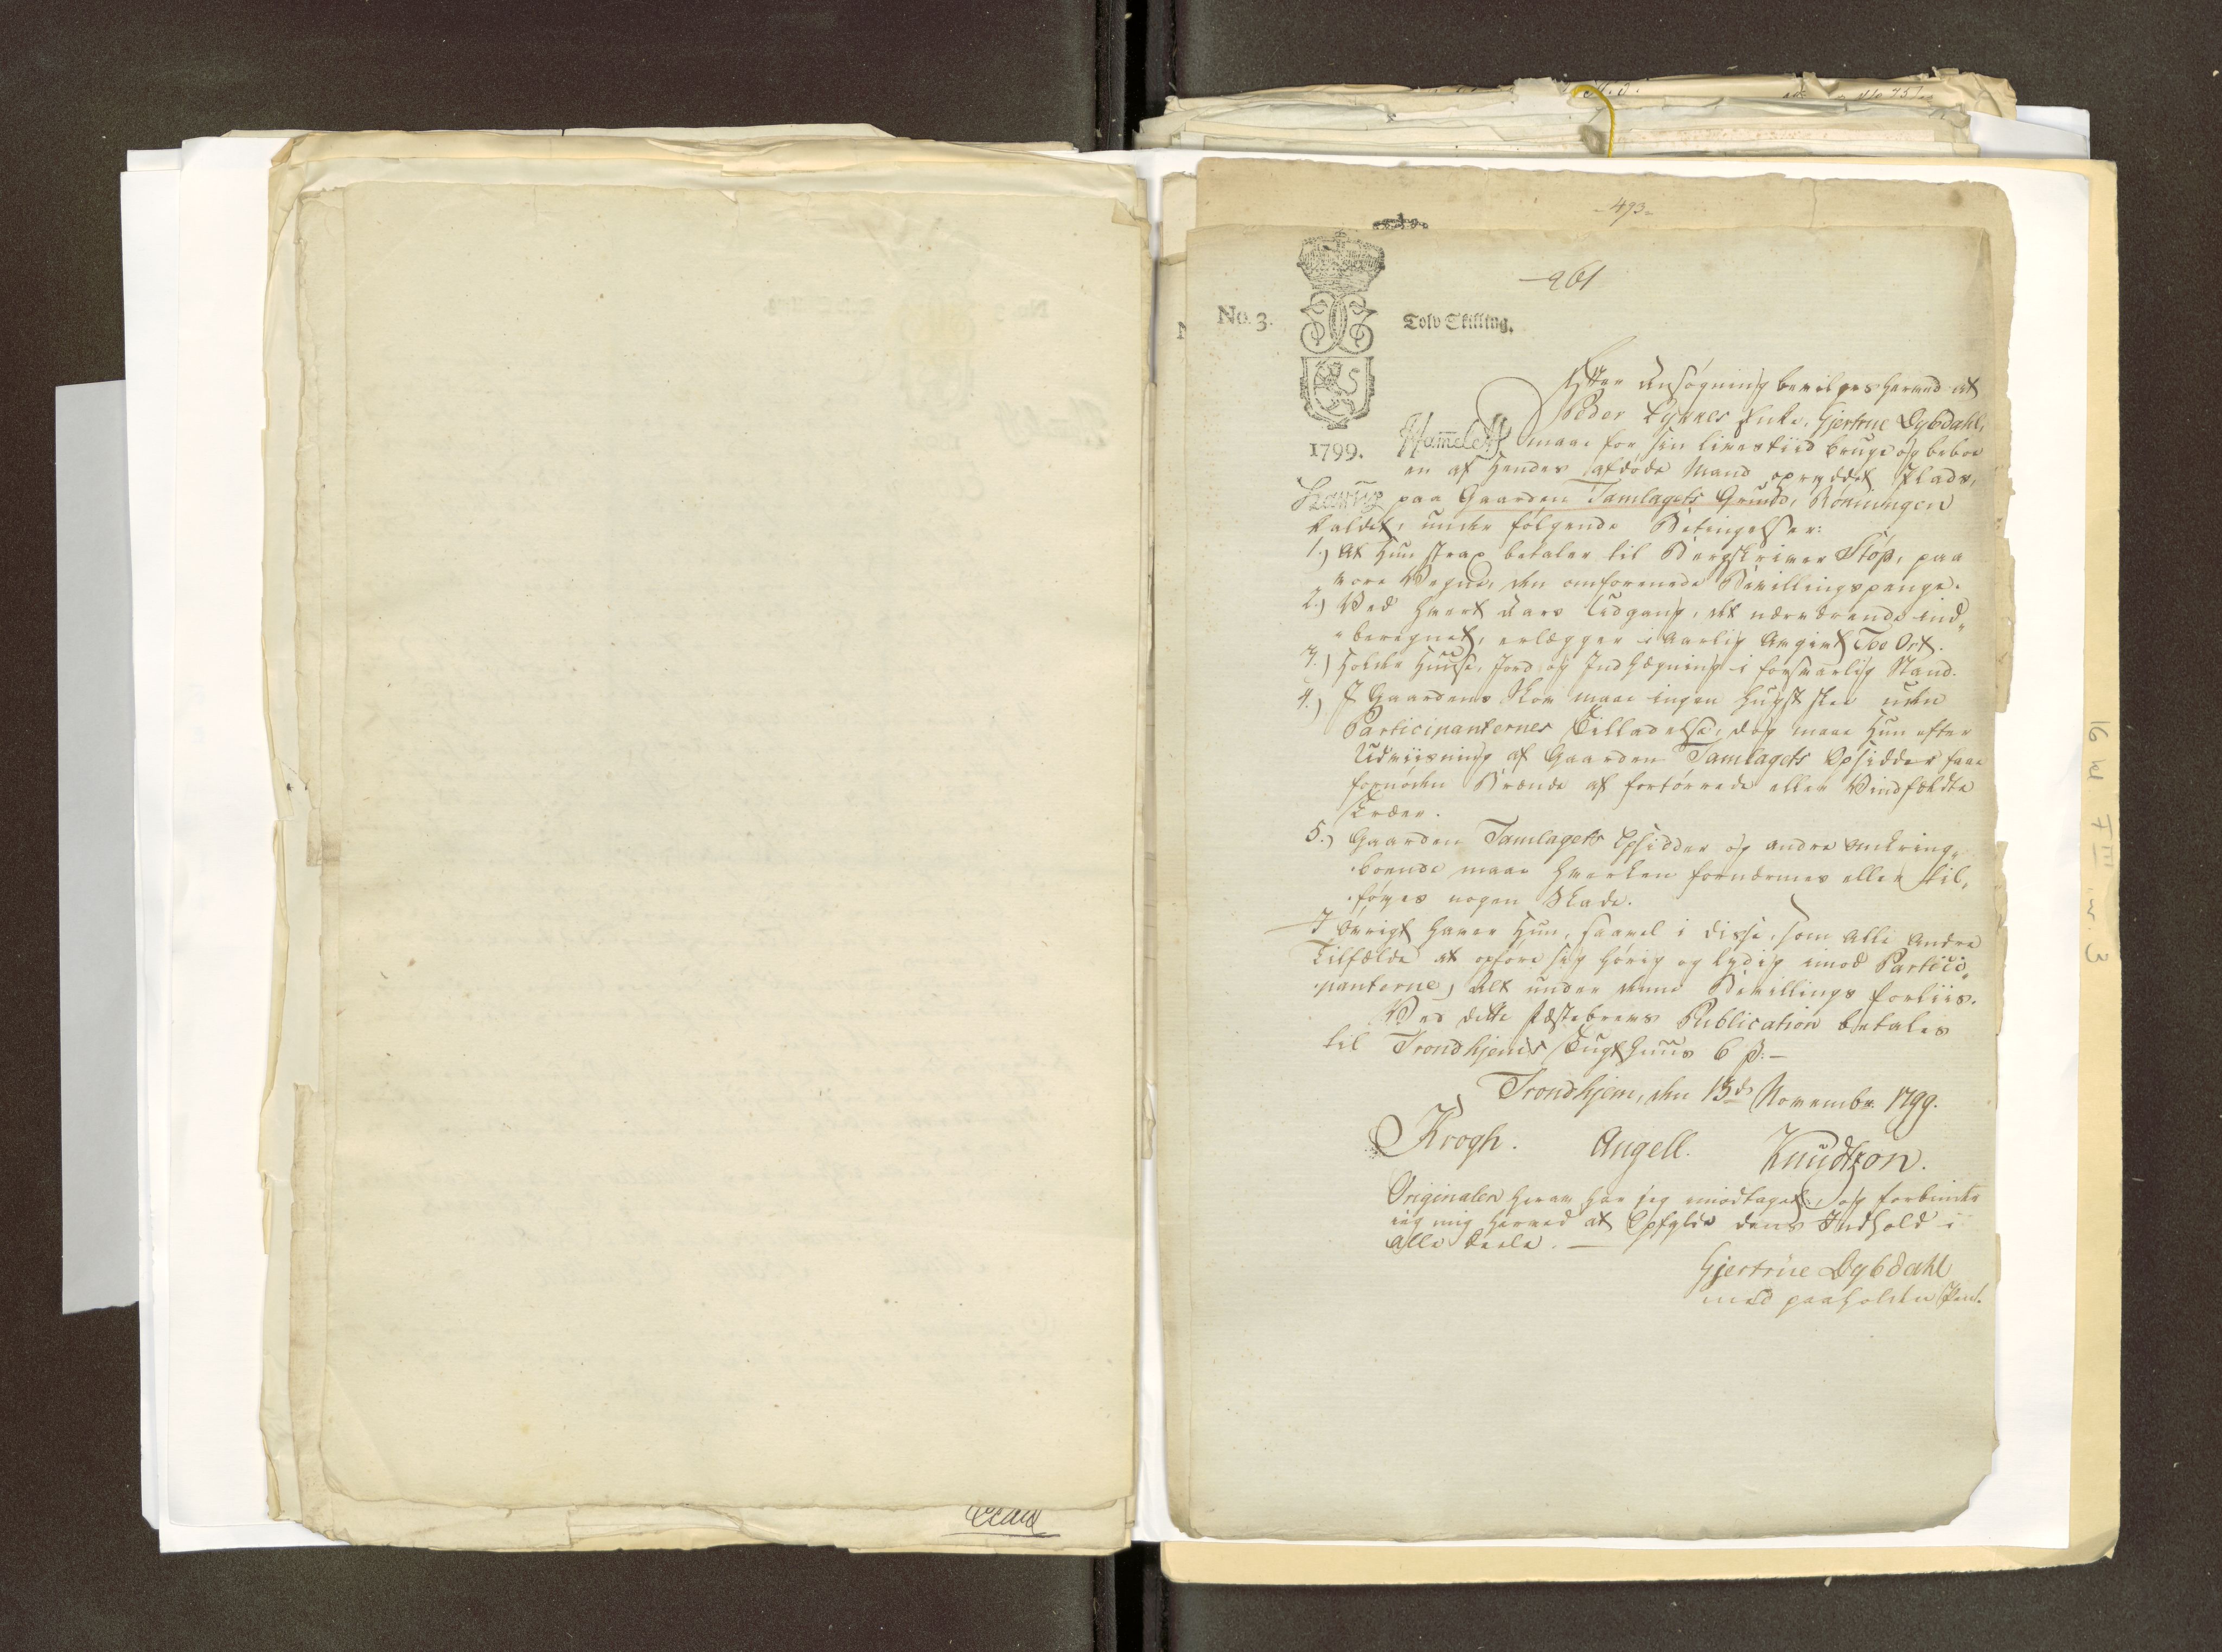 -493-
-261
No. 3.
Tolv Skilling.
1799.
Efter Ansøgning bevilges herved at
Peder Lynnes Enke, Gjertrue Dybdahl,
maae for sin livestiid bruge og beboe
en af hendes afdøde Mand opryddet Plads,
paa Gaarden Tamlagets Grund, Rønningen
kaldet, under følgende Betingelser:
1.) At hun strax betaler til Bergskriver Støp, paa
vore Vegne, den omforenede Bevillingspenge.
2.) Ved hvert Aars Udgang, det nærværende ind„
„beregnet, erlægger i aarlig Avgivt Toe Ort.
3.) Holder Huuse, Jord og Indhægning i forsvarlig Stand.
4.) I Gaardens Skov maae ingen Hugst skee uden
Participanternes Tilladelse, dog maae hun efter
Udviisning af Gaarden Tamlagets Opsidder faae
fornøden Brænde af fortørrede eller Vindfældte
Træer.
5.) Gaarden Tamlagets Opsidder og andre omkring„
boende maae hverken fornærmes eller til„
føyes nogen Skade.
I øvrigt haver hun, saavel i disse, som alle andre
Tilfælde at opføre sig hørig og lydig imod Partici„
panterne, Alt under denne Bevillings forliis.
Ved dette Fæstebrevs Publication betales
til Trondhjems Tugthuus 6 ß.-
Trondhjem, den 13de Novembr. 1799.
Krogh. Angell. Knudtzon.
Originalen herav har jeg imodtaget, og forbinder
jeg mig herved at Opfylde dens Indhold i
alle Deele. —
Gjertrue Dybdahl
med paaholden Pen.
16 kl 7 III nr. 3